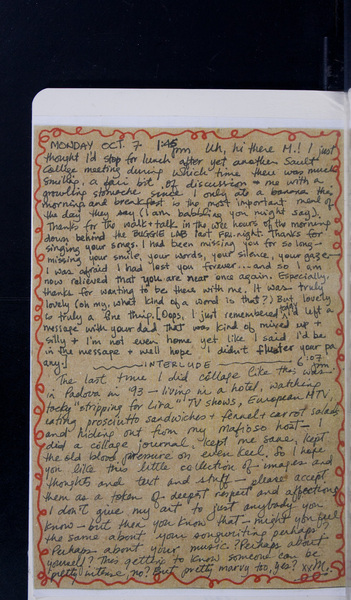 MONDAY OCT. 7 1:45 pm Uh, hi there M.! I just
thought I'd stop for lunch after yet another Sault
College meeting during which time there was much
smiling, a fair bit of discussion + me with a
growling stomache since I only ate a banana this
morning and breakfast is the most important meal of
the day they say (I am babbling you might say).
Thanks for the walk + talk in the wee hours of the morning
down behind the DOGGIE LAB last Fri. night. Thanks for
singing your songs. I had been missing you for so long -
missing your smile, your words, your silence, your gaze -
I was afraid I had lost you forever... and so I am
now relieved that you are near once again. Especially,
thanks for wanting to be there with me. It was truly
lovely (oh my, what kind of a word is that?) But lovely
is truly a fine thing. [Oops, I just remembered I left a
message with your dad that was kind of mixed up +
silly + I'm not even home yet like I said I'd be
in the message + well hope I didn't fluster your pa
any]
INTERLUDE 6:07 pm
The last time I did collage like this was
in Padova in '93 - living in a hotel, watching
tacky "stripping for Lira" TV shows, European MTV,
eating prosciutto sandwiches + fennel + carrot salads
and hiding out from my mafioso host - I
did a collage journal - kept me sane, kept
the old blood pressure on even keel, so I hope
you like this little collection of images and
thoughts and text and stuff - please accept
them as a token of deepest respect and affection
I don't give my art to just anybody you
know - but then you know that - might you feel
the same about your songwriting perhaps?
Perhaps about your music? Perhaps about
yourself? This getting to know someone can be
pretty intense, no? But pretty marvy too, yes? xx M.